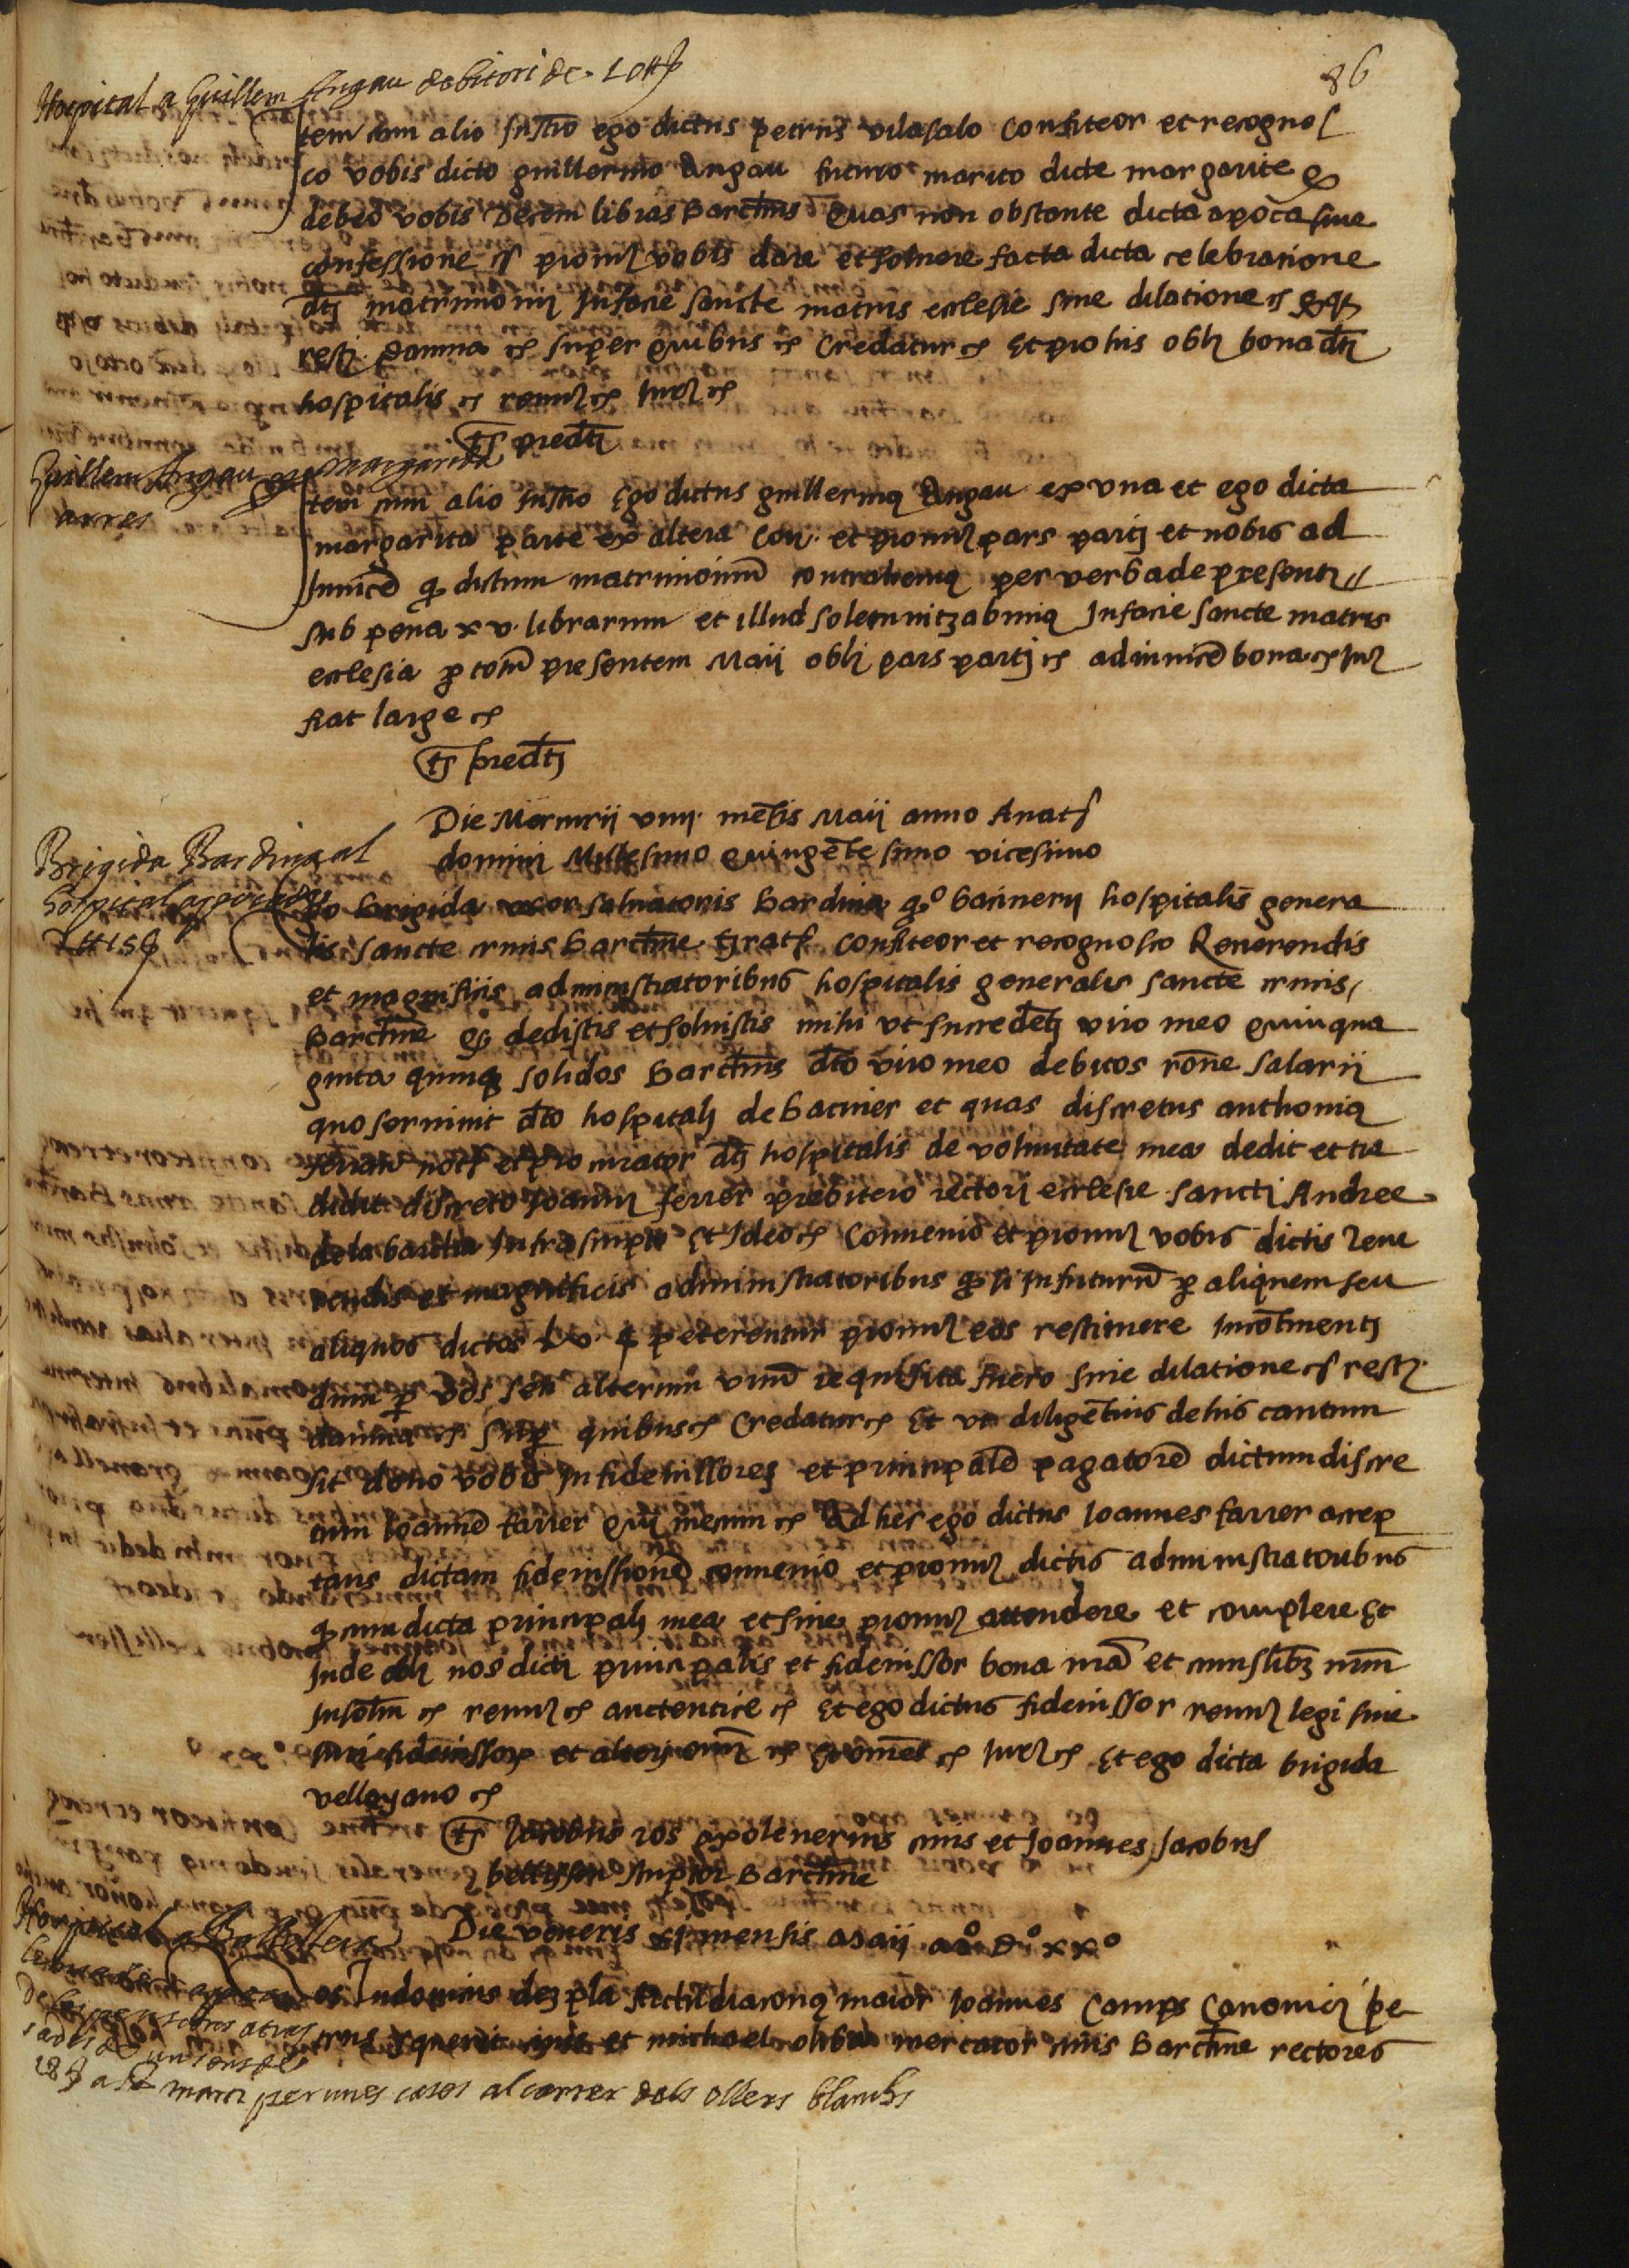 86
Hospital a Guillem Angau debitori de 10 ₶
Item cum alio Instro ego dictus petrus vilasalo confiteor et recognos
co vobis dicto guillermo Angau futuro marito dicte margarite q
debeo vobis decem libras Barchns quas non obstante dicta apoca sive
confessione etc promit vobis dare et solvere facta dicta celebratione
dti matrimonii Infacie sancte matris ecclesie sine dilatione etc
resti damna etc super quibus etc Credatur etc Et pro his obli bona dti
hospitalis etc renun etc Iur etc
Ts predti
Guillem Angau Margarida
arres
Item cum alio Instro Ego dictus guillermus Angau ex una et ego dicta
margarita parte ex altera Con et promit pars parti et nobis ad
Invicem q dictum matrimonium contrahemus per verba de presenti
sub pena xv librarum et illud solemnitzabimus Infacie sancte matris
ecclesia p totum presentem Maii obli pars parti etc adinvicem bona etc Iur
fiat large etc
Ts predti
Die Mercurii viiii mensis Maii anno Anat
domini Millesimo quingentesimo vicesimo
Brigida Bardina al
hospital apoca de
2 ₶ 15 s
Ego brigida uxor salvatoris bardina qo bacinerii hospitalis genera
lis sancte crucis barchne grat confiteor et recognosco Reverendis
et magnificis administratoribus hospitalis generalis sancte crucis
Barchne q dedistis et solvistis mihi ut sucredeti viro meo quinqua
ginta quinq solidos barchns dto viro meo debitos rone salarii
quo servivit dto hospitali de baciner et quas discretus anthonius
ferran nots et procurator dti hospitalis de voluntate mea dedit et tra
didit discreto Joanni ferrer prebitero rectori ecclesie sancti Andree
dela barcha Infrascripto Et Ideo etc Convenio et promit vobis dictis reve
rendis et magnificis administratoribus q si Infuturum p aliquem seu
aliquos dictos Lv s peterentur promit eos restituere Incontinenti
dum p vos seu alterum vrum requisita fuero sine dilatione etc resti
damna etc Sup quibus etc Credatur etc Et ut diligentius de his cautum
sit dono vobis In fideiussorem et principale pagatore dictum discre
tum Joanne farrer qui mecum etc Ad hec ego dictus Joannes farrer accep
tans dictam fideiussione convenio et promit dictis administratoribus
q cum dicta principali mea et sine promit attendere et complere Et
Inde obli nos dicti principalis et fideiussor bona nra et cuiuslibet nrum
Insolm etc renun etc auctentice etc Et ego dictus fideiussor renun legi sive
Iuri fideiussor et alteri omni etc Iur etc Et ego dicta brigida
velleyano etc
Ts Jacobus ros civis et Joannes Jacobus
scriptor Barchne
Die veneris xi mensis maii ao do xxo
Hospital
atras
sades de un censal
18 s a St marti per unes cases al carrer dels ollers blanchs
Nos Indominus dez pla Archidiaconus maior Joannes Camps Canonici pe
trus civis et michael oliba mercator civis Barchne rectores